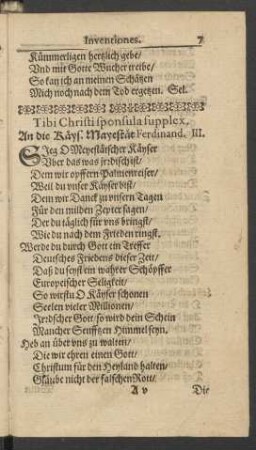 Inventiones. 7
Kümmerligen hertzlich gebe/
Vnd mit Gotte Wucher treibe/
So kan ich an meinen Schätzen
Mich noch nach dem Tod ergetzen. Sel.
Tibi Christi sponsula supplex,
An die Käys. Mayestät Ferdinand. III.
Sieg O Meyestätscher Käyser
Vber das was irrdisch ist/
Dem wir opffern Palmenreiser/
Weil du vnser Käyser bist/
Dem wir Danck zu vnsern Tagen
Für den milden Zepter sagen/
Der du täglich für vns bringst/
Wie du nach dem Frieden ringst.
Werde du durch Gott ein Treffer
Deutsches Friedens dieser Zeit/
Daß du seyst ein wahrer Schöpffer
Europeischer Seligkeit/
So wirstu O Käyser schonen
Seelen vieler Millionen/
Irrdscher Gott/ so wird dein Schein
Mancher Seufftzen Himmel seyn.
Heb an über vns zu walten/
Die wir ehren einen Gott/
Christum für den Heyland halten/
Gläube nicht der falschen Rott/
A v Die